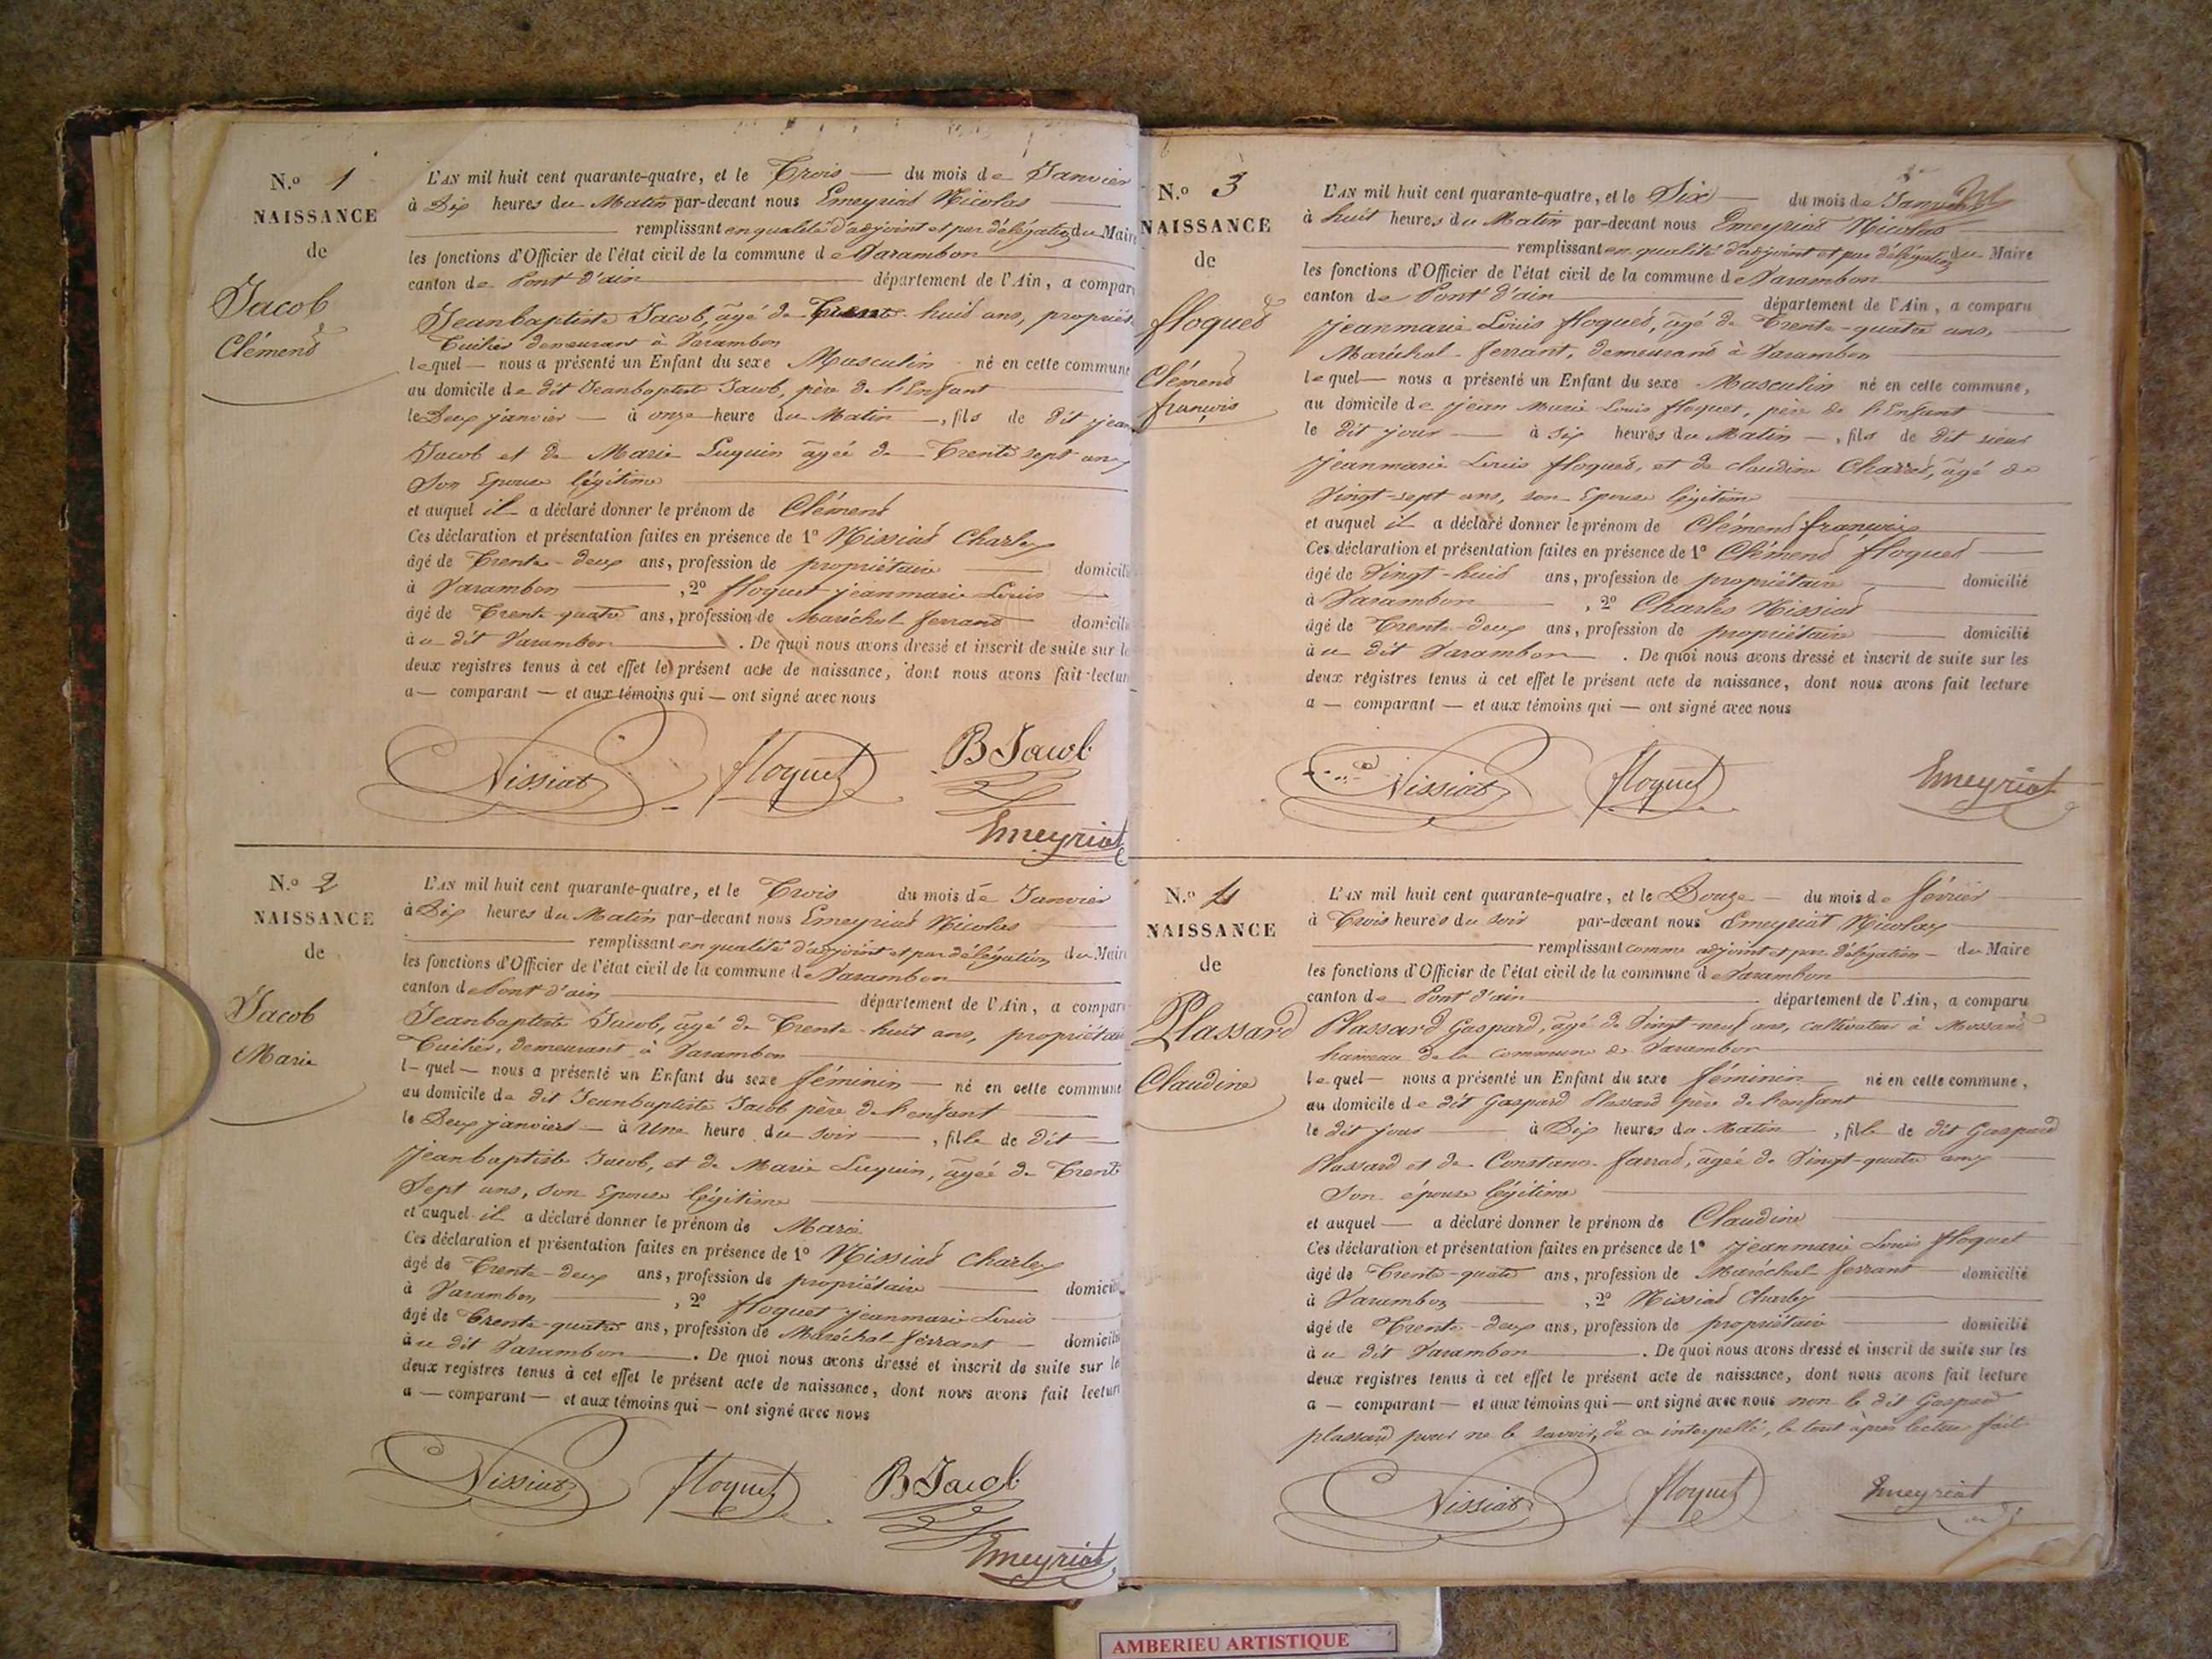 N.º 1
NAISSANCE
de
Jacob
Clément
L'AN mil huit cent quarante-quatre, et le Trois — du mois de Janvier
à Dix heures du Matin par-devant nous Emeyriat Nicolas
remplissant en qualité d'adjoint et par délégation du Maire
les fonctions d'Officier de l'état civil de la commune de Varambon
canton de Pont d'ain département de l'Ain, a compar
Jeanbaptiste Jacob, âgé de Trente huit ans, propriét
Tuilier demeurant à Varambon
lequel — nous a présenté un Enfant du sexe Masculin né en cette commune
au domicile de dit Jeanbaptiste Jacob, père de l'Enfant
le Deux janvier — à onze heure du Matin —, fils de dit jean
Jacob et de Marie Luquin âgéé de Trente sept ans
Son Epouse légitime
et auquel il a déclaré donner le prénom de Clément
Ces déclaration et présentation faites en présence de 1º Nissiat Charles
âgé de Trente-deux ans, profession de propriétaire — domicili
à Varambon —, 2º floquet jeanmarie Louis
âgé de Trente-quatre ans, profession de Maréchal ferrant domicili
à u dit Varambon . De quoi nous avons dressé et inscrit de suite sur le
deux registres tenus à cet effet le présent acte de naissance, dont nous avons fait lectur
a — comparant — et aux témoins qui — ont signé avec nous
Nissiat floquet B Jacob
Emeyriat
N.º 2
NAISSANCE
de
Jacob
Marie
L'AN mil huit cent quarante-quatre, et le Trois du mois de Janvier
à Dix heures du Matin par-devant nous Emeyriat Nicolas
remplissant en qualité d'adjoint et par délégation du Maire
les fonctions d'Officier de l'état civil de la commune de Varambon
canton de Pont d'ain département de l'Ain, a compar
Jeanbaptiste Jacob, âgé de Trente-huit ans, propriétaire
Tuilier, demeurant à Varambon
l—quel — nous a présenté un Enfant du sexe féminin — né en cette commune
au domicile de dit Jeanbaptiste Jacob père de l'enfant
le Deux janviers — à Une heure du soir —, fille de dit
jeanbaptiste Jacob, et de Marie Luquin, âgéé de Trente
Sept ans, son Epouse légitime
et auquel il a déclaré donner le prénom de Marie
Ces déclaration et présentation faites en présence de 1º Nissiat Charles
âgé de Trente-deux ans, profession de propriétaire — domicili
à Varambon —, 2º floquet jeanmarie Louis
âgé de Trente-quatre ans, profession de Maréchal-ferrant — domicili
à u dit Varambon —. De quoi nous avons dressé et inscrit de suite sur le
deux registres tenus à cet effet le présent acte de naissance, dont nous avons fait lectur
a — comparant — et aux témoins qui — ont signé avec nous
Nissiat floquet B Jacob
Emeyriat
N.º 3
NAISSANCE
de
floquet
Clément
françois
L'AN mil huit cent quarante-quatre, et le Six — du mois de Janvier
à huit heures du Matin par-devant nous Emeyriat Nicolas
remplissant en qualité d'adjoint et par délégation du Maire
les fonctions d'Officier de l'état civil de la commune de Varambon
canton de Pont d'ain département de l'Ain, a comparu
jeanmarie Louis floquet, âgé de Trente-quatre ans,
Maréchal-ferrant, demeurant à Varambon
lequel — nous a présenté un Enfant du sexe Masculin né en cette commune,
au domicile de jean Marie Louis floquet, père de l'Enfant
le dit jour — à six heures du Matin —, fils de dit sieur
jeanmarie Louis floquet, et de claudine Charret, âgé de
Vingt-sept ans, son Epouse légitime
et auquel il a déclaré donner le prénom de Clément françois
Ces déclaration et présentation faites en présence de 1º Clément floquet
âgé de Vingt-huit ans, profession de propriétaire — domicilié
à Varambon —, 2º Charles Nissiat
âgé de Trente-deux ans, profession de propriétaire — domicilié
à u dit Varambon — . De quoi nous avons dressé et inscrit de suite sur les
deux régistres tenus à cet effet le présent acte de naissance, dont nous avons fait lecture
a — comparant — et aux témoins qui — ont signé avec nous
Nissiat floquet Emeyriat
N.º 4
NAISSANCE
de
Plassard
Claudine
L'AN mil huit cent quarante-quatre, et le Douze — du mois de février
à Trois heures du soir par-devant nous Emeyriat Nicolas
remplissant comme adjoint et par délégation — du Maire
les fonctions d'Officier de l'état civil de la commune de Varambon
canton de Pont d'ain département de l'Ain, a comparu
Plassard Gaspard, âgé de Vingt-neuf ans, cultivateur à
hameau de la commune de Varambon
lequel — nous a présenté un Enfant du sexe féminin né en cette commune,
au domicile de dit Gaspard Plassard père de l'enfant
le dit jour — à Dix heures du Matin —, fille de dit Gaspard
Plassard et de Constance âgéé de Vingt-quatre ans
Son épouse légitime
et auquel — a déclaré donner le prénom de Claudine
Ces déclaration et présentation faites en présence de 1º jeanmarie Louis floquet
âgé de Trente-quatre ans, profession de Maréchal ferrant — domicilié
à Varambon —, 2º Nissiat Charles
âgé de Trente-deux ans, profession de propriétaire — domicilié
à u dit Varambon — . De quoi nous avons dressé et inscrit de suite sur les
deux registres tenus à cet effet le présent acte de naissance, dont nous avons fait lecture
a — comparant — et aux témoins qui — ont signé avec nous non le dit Gaspard
plassard pour ne le savoir, de ce interpellé, le tout après lecture fait
Nissiat floquet Emeyriat
AMBERIEU ARTISTIQUE